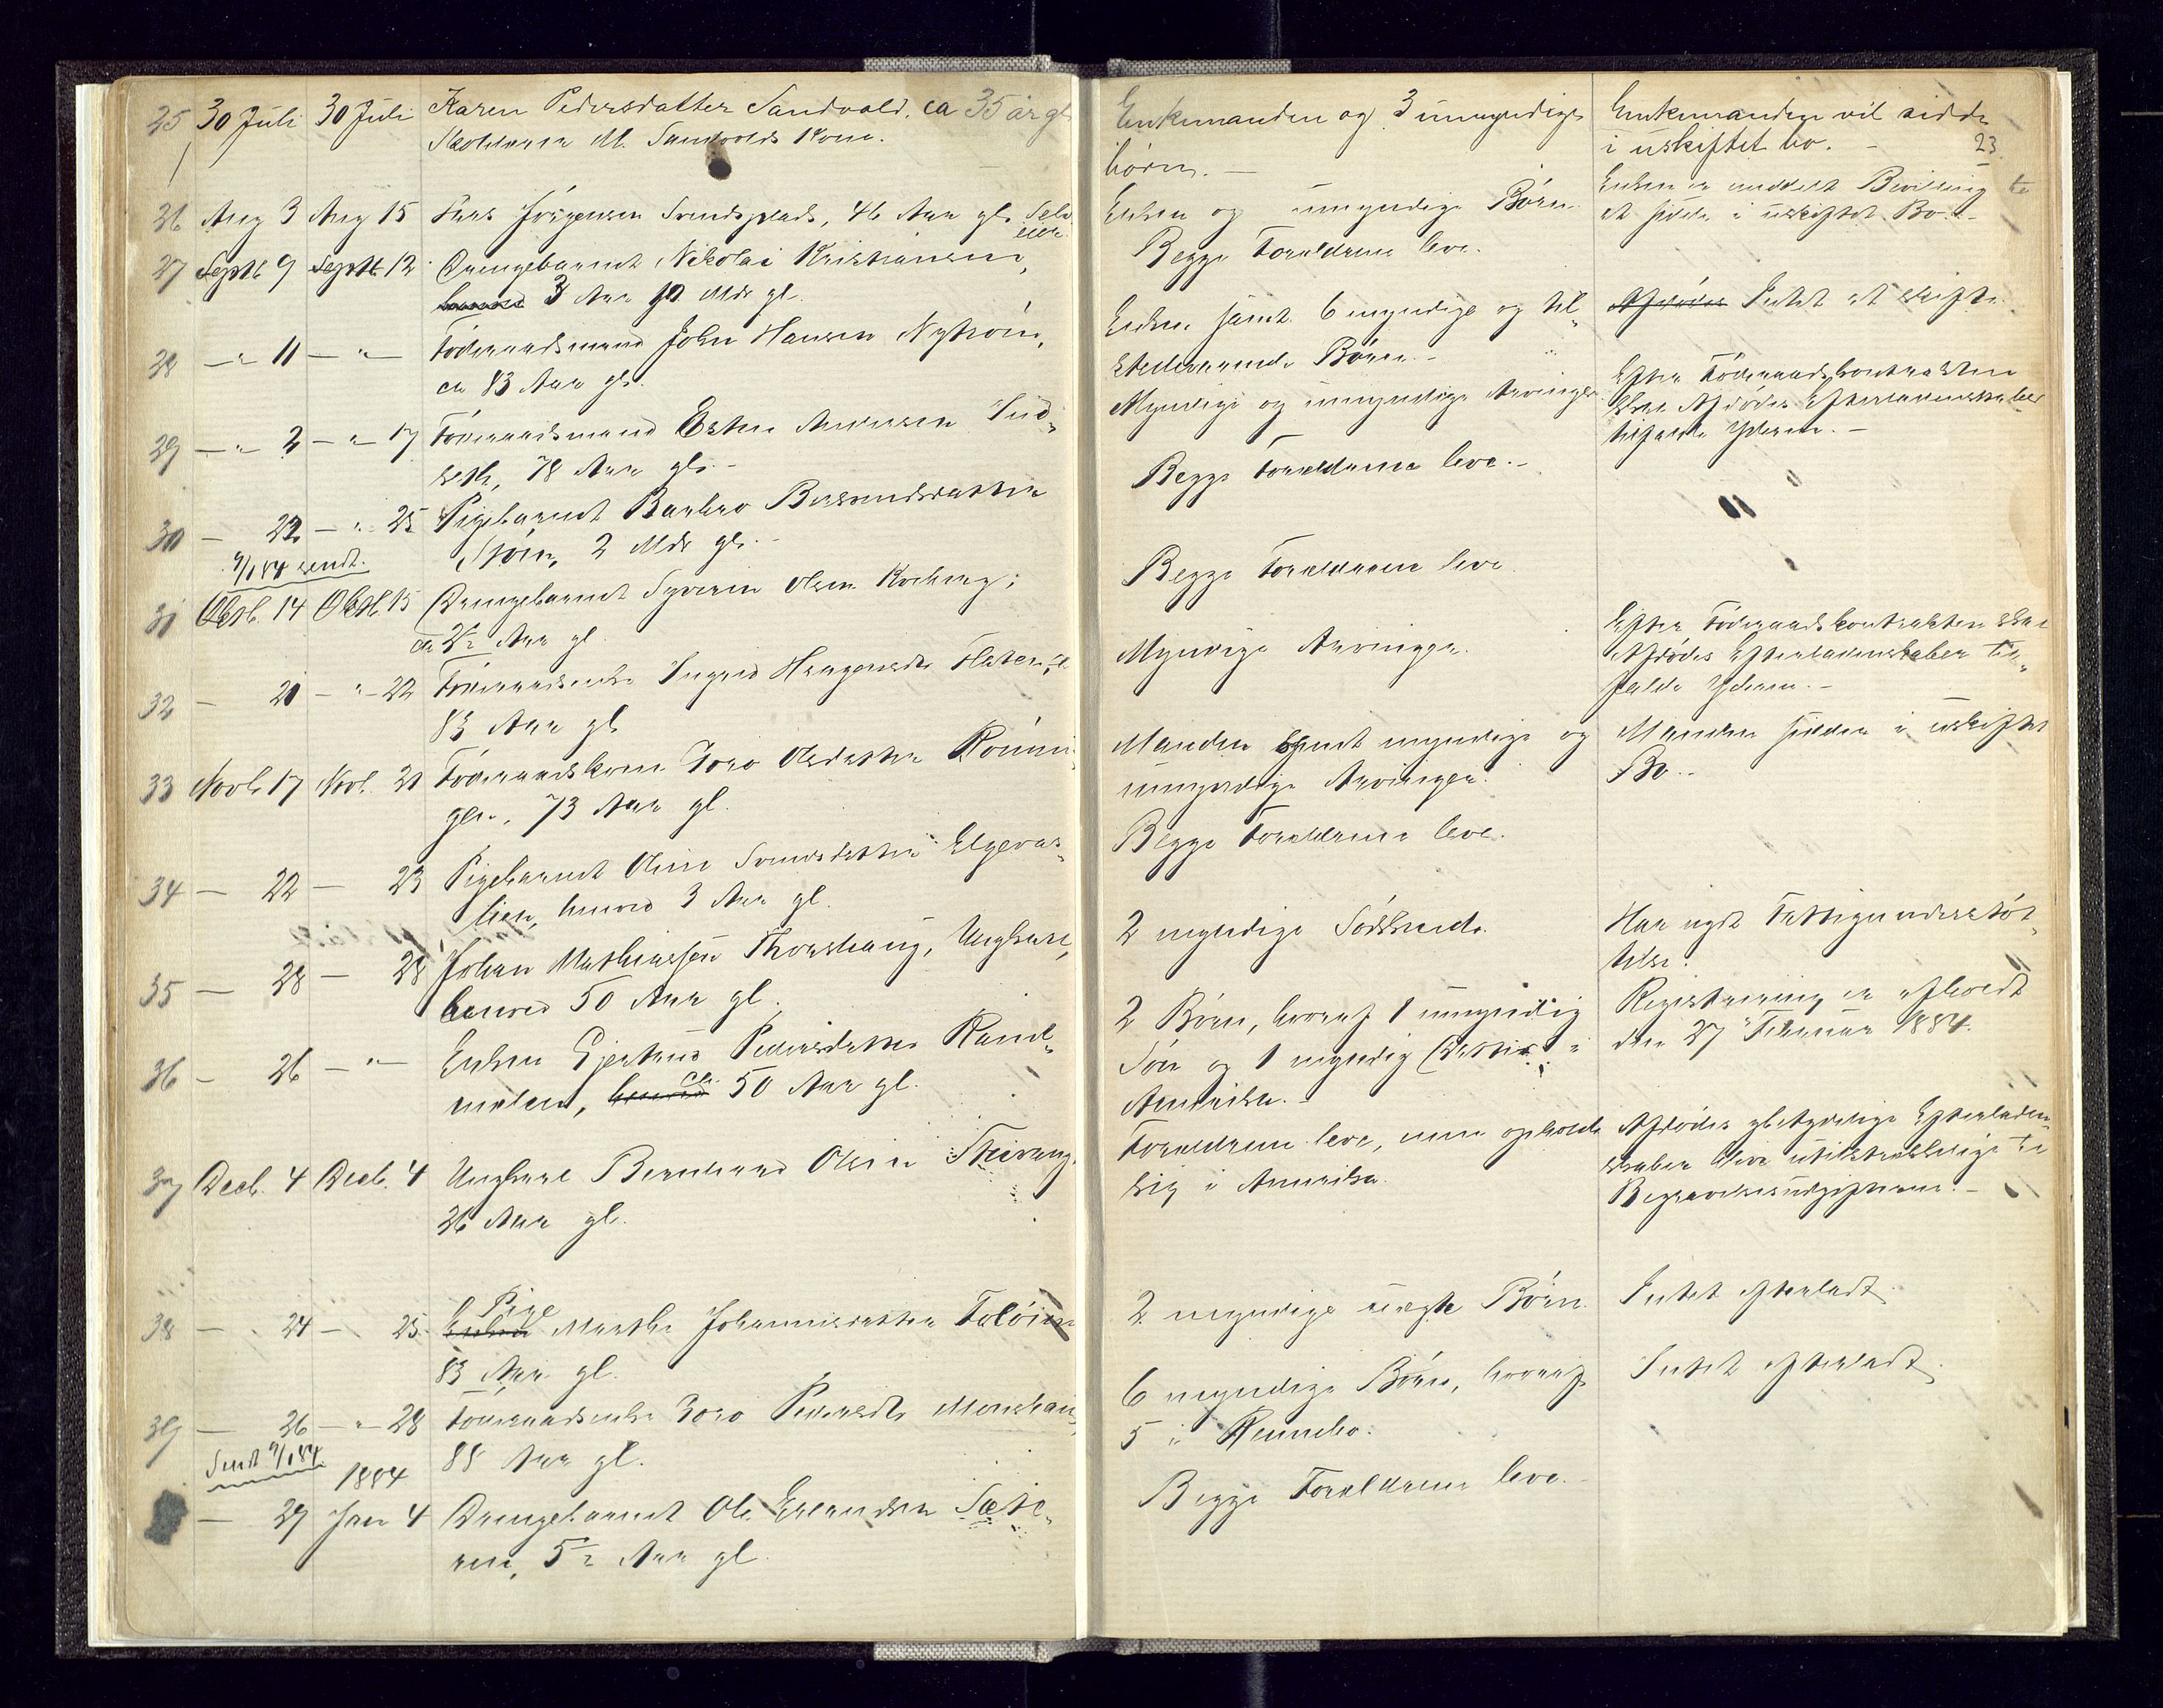 25 30 Juli 30 Juli Karen Pedersdatter Sandvold, ca 35 år gl
M. Sandvolds Kone.
Enkemanden og 3 umyndige
børn. —
Enkemanden vil sidde
i uskiftet bo. —
23
26 Aug 3 Aug 15 Lars Jörgensen Svendsplads, 46 Aar gl. Selv
eier.
Enken og umyndige Börn
Enken er meddelt Bevilling til
at sidde i uskiftet Bo. —
27 Septb 9 Septb 12 Drengebarnet Nikolai Kristiansen,
3 Aar 10 Mdr gl.
Begge Forældrene leve.
28 — " 11 — " — Föderaadsmand John Hansen Nytröen,
ca 83 Aar gl.
Enken samt 6 myndige og til
stedeværende Börn. —
Afdödes Intet at skifte.
29 — " 2 — " 17 Föderaadsmand Esten Andersen
seth, 78 Aar gl. —
Myndige og umyndige Arvinger
Efter Föderaadskontrakten
skal Afdödes Efterladenskaber
tilfalde Yderen. —
30 — 22 — " 25 Pigebarnet Barbro
2 Mdr gl. —
Begge Forældrene leve. —
9/1 84 sendt.
31 Oktb. 14 Oktb. 15 Drengebarnet Olsen
ca 2½ Aar gl.
Begge Forældrene leve
32 — 21 — " 22 Föderaadsenke Ingrid
83 Aar gl
Myndige Arvinger.
Efter Föderaadskontrakten skal
Afdödes Efterladenskaber til
falde Yderen. —
33 Novb. 17 Nov. 21 Föderaadskone Goro Olsdatter
73 Aar gl.
Manden samt myndige og
umyndige Arvinger.
Manden sidder i uskiftet
Bo. —
34 — 22 — 23 Pigebarnet Oline Svendsdatter Elgevas
lien, henved 3 Aar gl.
Begge Forældrene leve.
35 — 28 — 28 Johan Mathiassen Thorshaug, Ungkarl,
henved 50 Aar gl.
2 myndige Södskende.
Har nydt Fattigunderstöt
telse.
36 — 26 — " — Enken Gjertrud Pedersdatter Rand
mælen, henved ca. 50 Aar gl.
2 Börn, hvoraf 1 umyndig
Sön og 1 myndig Datter i
Amerika. —
Registrering er afholdt
den 27 Februar 1884.
37 Decb. 4 Decb. 4 Ungkarl Bernhard Olsen
26 Aar gl.
Forældrene leve, men opholde
sig i Amerika.
Afdödes ubetydelige Efterladen
skaber blive utilstrækkelige til
Begravelsesudgifterne. —
38 — 24 — 25 Pige
Enken Marthe Johannesdatter
83 Aar gl.
2 myndige uægte Börn.
Intet efterladt
39 — 26 — " 28 Föderaadsenke Goro Pedersdtr
88 Aar gl.
6 myndige Börn, hvoraf
5 i Rennebo.
Intet efterladt.
Sendt 9/1 84
1884
— 29 Jan 4 Drengebarnet Ole Erlandsen Sæte
ren, 5½ Aar gl.
Begge Forældrene leve. —